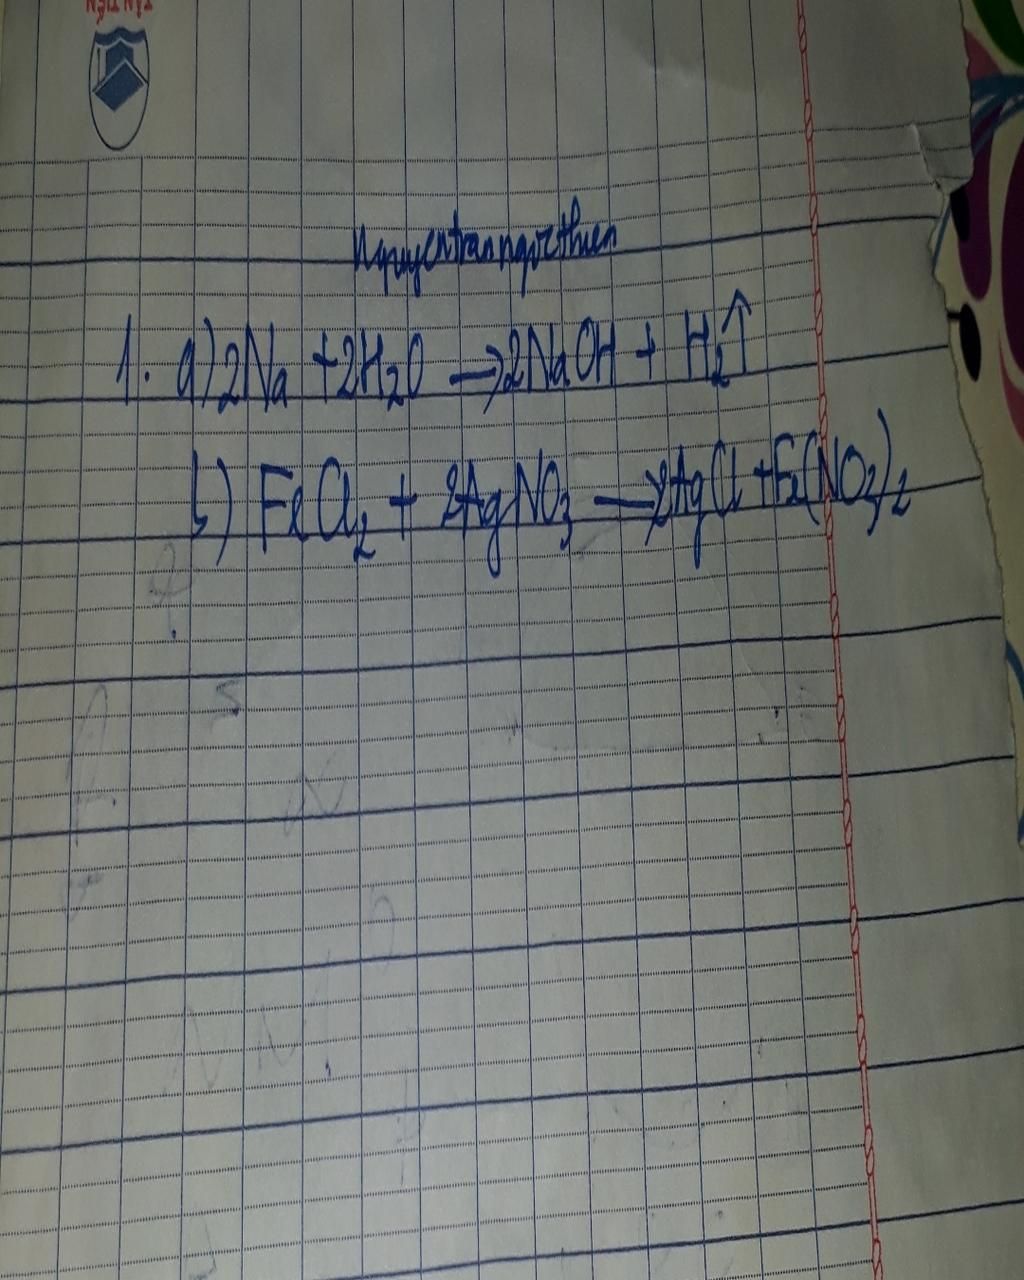 TÂN TIẾN
Nguyentranngocthien
1. a) 2Na + 2H₂O → 2NaOH + H₂↑
b) FeCl₂ + 2AgNO₃ → 2AgCl + Fe(NO₃)₂